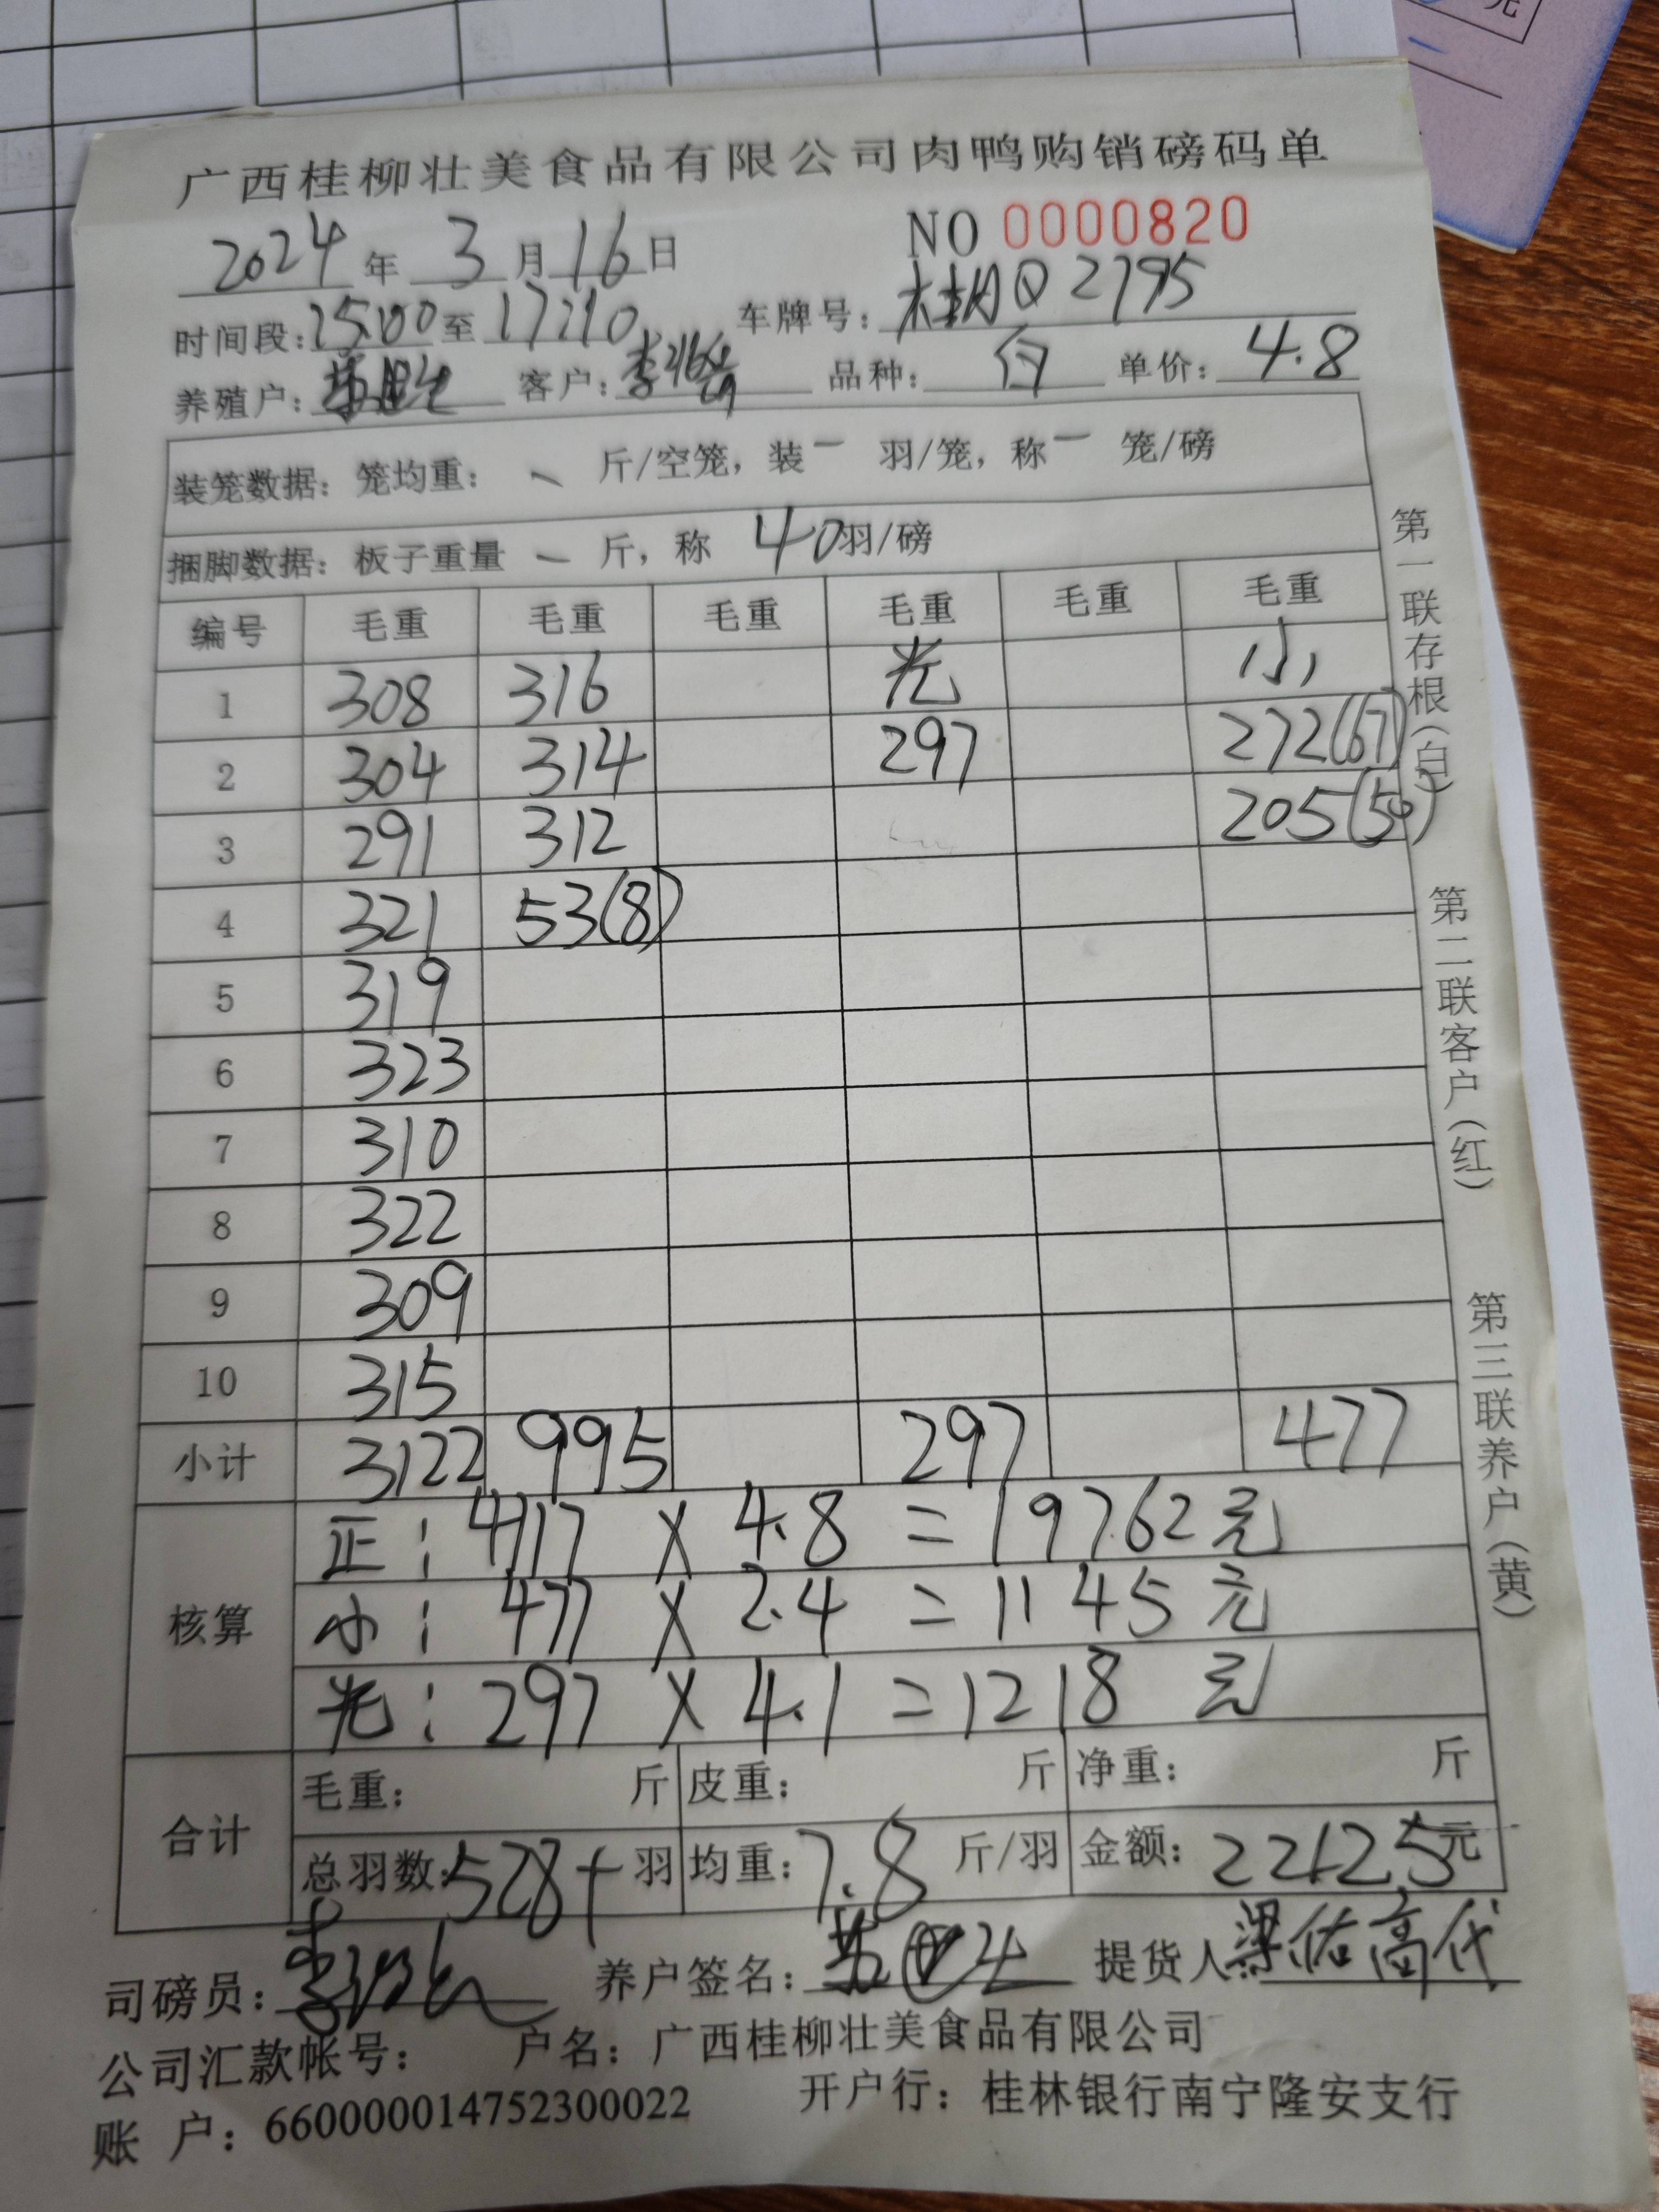 广西桂柳壮美食品有限公司肉鸭购销磅码单
2024年3月16日 NO 0000820
时间段:15:00至17:10 车牌号:桂AQ2795
养殖户: 客户:李 品种: 白 单价:4.8
装笼数据:笼均重: - 斤/空笼,装 - 羽/笼,称 - 笼/磅
捆脚数据:板子重量 - 斤,称 40羽/磅
编号 毛重 毛重 毛重 毛重 毛重 毛重
1 308 316 光 小
2 304 314 297 272(67)
3 291 312 205(50)
4 321 53(8)
5 319
6 323
7 310
8 322
9 309
10 315
小计 3122 995 297 477
核算
正: 4117 × 4.8 = 19762元
小: 477 × 2.4 = 1145元
光: 297 × 4.1 = 1218元
合计
毛重: 斤 皮重: 斤 净重: 斤
总羽数:528+羽 均重:7.8斤/羽 金额:22125元
司磅员:李 养户签名: 提货人:梁佑高代
公司汇款帐号: 户名:广西桂柳壮美食品有限公司
账 户:660000014752300022 开户行:桂林银行南宁隆安支行
第一联存根(白)
第二联客户(红)
第三联养户(黄)
元